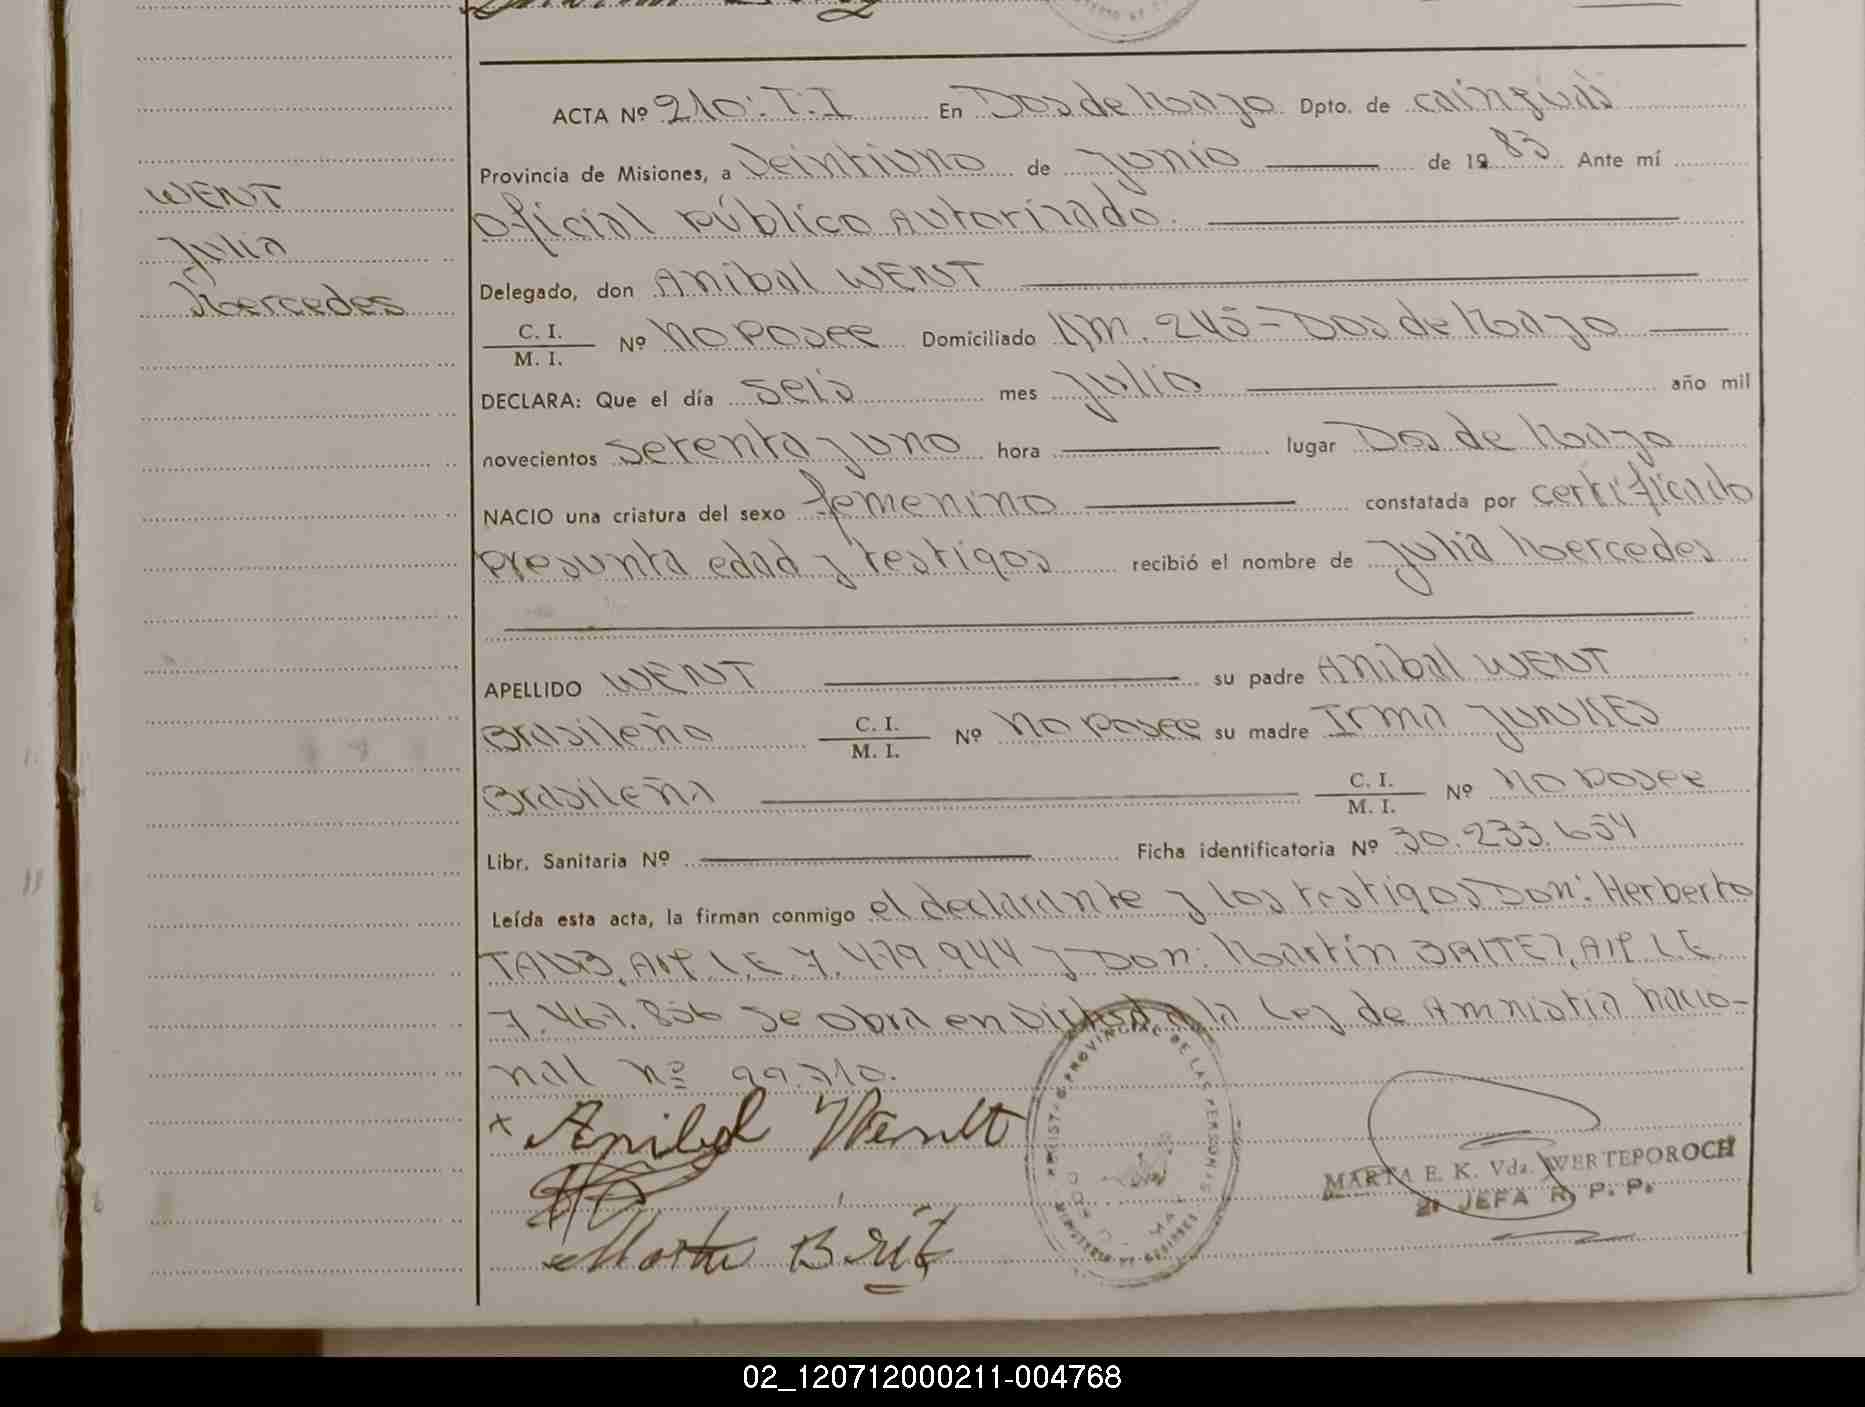 ACTA Nº 210: T: I En Dos de Mayo Dpto. de cainguás
Provincia de Misiones, a Veintiuno de Junio de 1983 Ante mí
Oficial Público Autorizado.
WENT
Julia
Mercedes
Delegado, don Anibal WENT
C. I.
M. I. Nº No Posee Domiciliado Km. 245 - Dos de Mayo
DECLARA: Que el día seis mes Julio año mil
novecientos setenta y uno hora lugar Dos de Mayo
NACIO una criatura del sexo femenino constatada por certificado
presunta edad y testigos recibió el nombre de Julia Mercedes
APELLIDO WENT su padre Anibal WENT
Brasileño C. I.
M. I. Nº No Posee su madre Irma JUNKES
Brasileña C. I.
M. I. Nº No Posee
Libr. Sanitaria Nº Ficha identificatoria Nº 30.233.654
Leída esta acta, la firman conmigo el declarante y los testigos Don: Herberto
L.E 7.479.944 y Don: Martín L.E
7.467.856 se obra en virtud a la Ley de Amnistia nacio-
nal nº
Anibal
MARTA E. K. Vda. WERTEPOROCH
JEFA R. P. P.
02_120712000211-004768